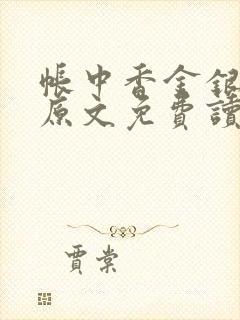 帳中香金銀
原文免費讀
賈棠